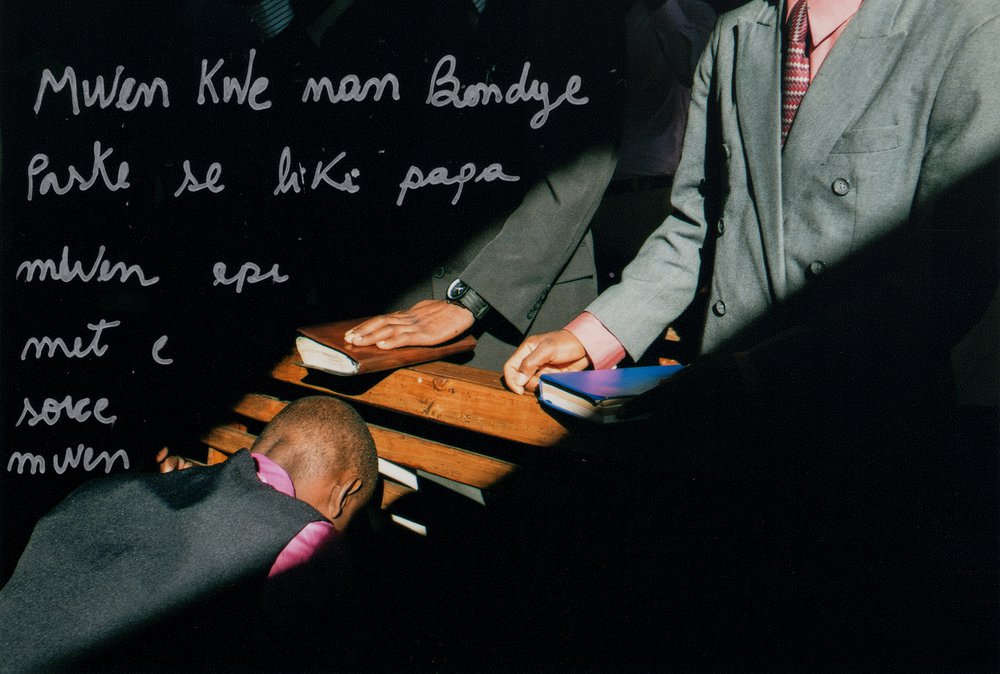 Mwen Kwe nan Bondye
Paske se liki papa
mwen epi
met e
sove
mwen